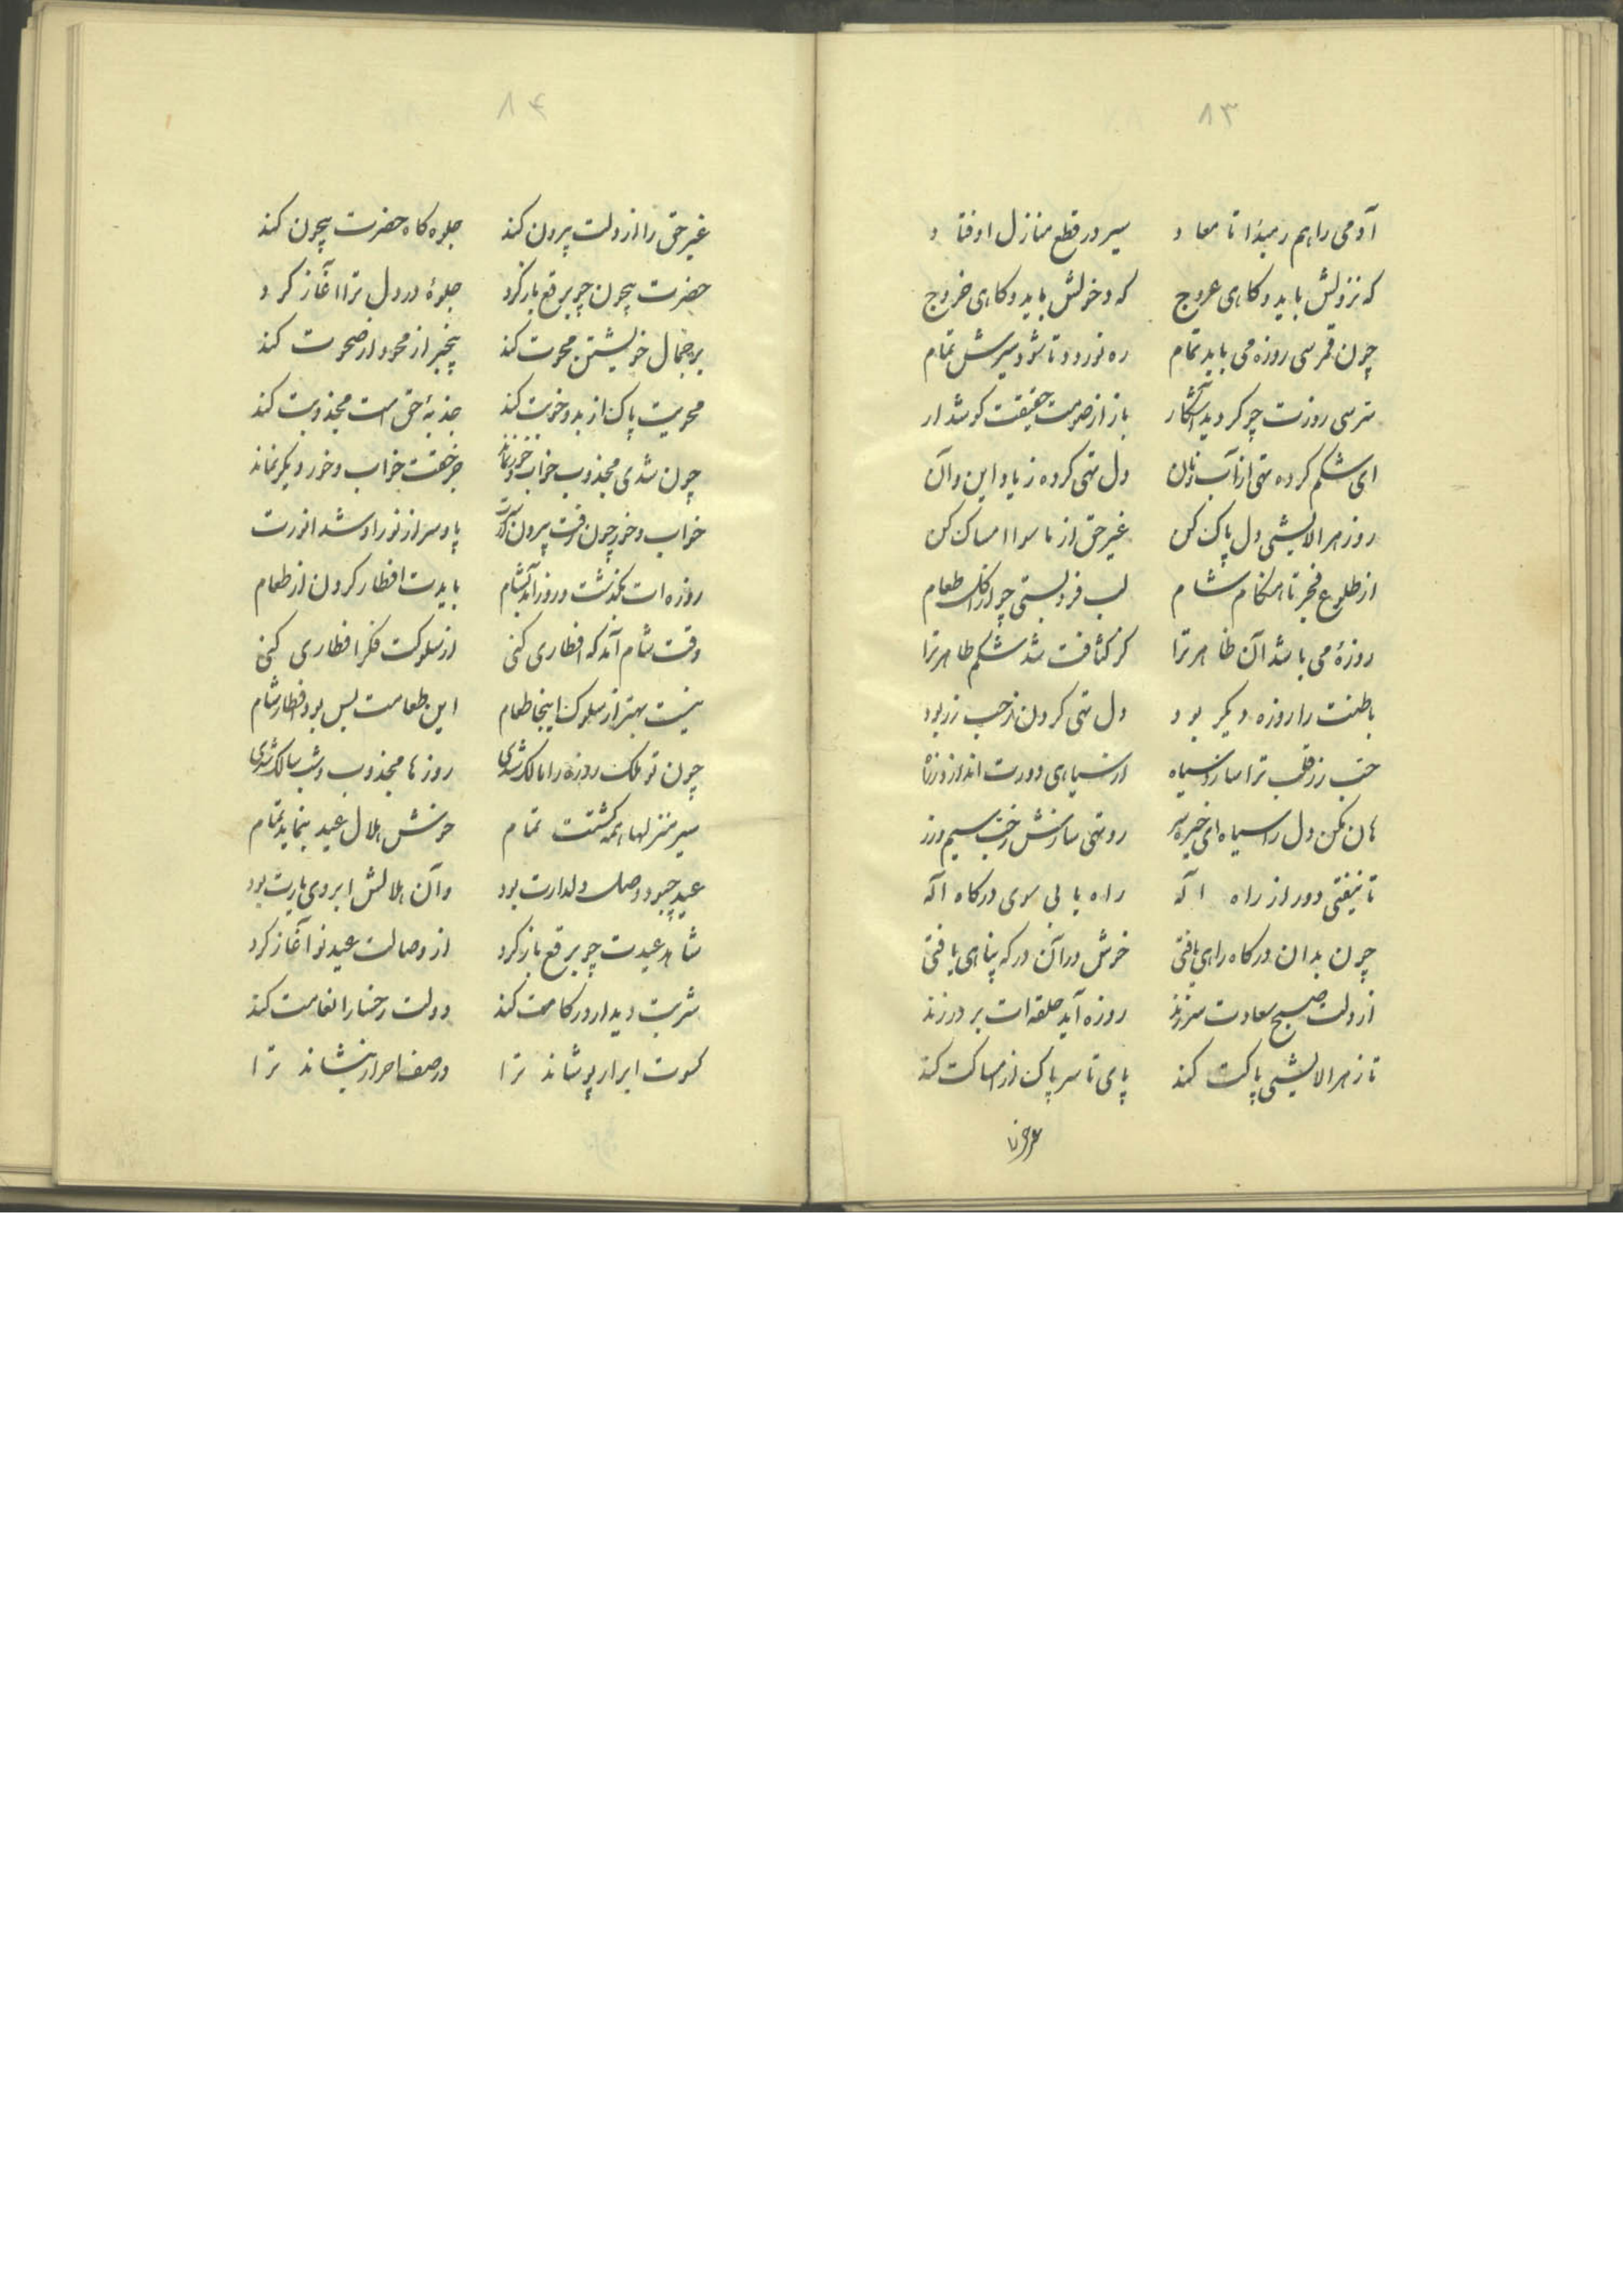 ۸۳
آدمی را هم ز مبدا تا معاد سیر در قطع منازل اوفتاد
که نزولش باید و کاهی عروج که دخولش باید و کاهی خروج
چون قمر سی روزه می باید تمام ره نوردد تا شود سیرش تمام
سرسی روزت چو کردید آشکار باز از صومت حقیقت کوشدار
ای شکم کرده تهی از آب و نان دل تهی کرده ز یاد این و آن
روز هر الایشی دل پاک کن غیر حق از ما سوا امساک کن
از طلوع فجر تا هنکام شام لب فرو بستی چو از اکل طعام
روزهٔ می باشد آن ظاهر ترا کز کثافت شد شکم طاهر ترا
باطنت را روزه دیکر بود دل تهی کردن ز حب زر بود
حب زر قلب ترا سازد سیاه از سیاهی دورت اندازد ز راه
هان مکن دل را سیاه ای خیره سر رو تهی سازش ز حب سیم و زر
تا نیفتی دور از راه اله راه یابی سوی درکاه اله
چون بدان درکاه راهی یافتی خوش در آن درکه پناهی یافتی
از دلت صبح سعادت سر زند روزه آید حلقه ات بر در زند
تا ز هر الایشی پاکت کند پای تا سر پاک از امساکت کند
۸۴
غیر حق را از دلت بیرون کند جلوه کاه حضرت بیچون کند
حضرت بیچون چو برقع باز کرد جلوهٔ در دل ترا آغاز کرد
بر جمال خویشتن محوت کند بیخبر از محو و از صحوت کند
محویت پاک از بد و خوبت کند جذبهٔ حق است مجذوبت کند
چون شدی مجذوب خواب و خور نماند جز حقت خواب و خور دیکر نماند
خواب و خور چون رفت بیرون از سرت پا و سر از نور او شد انورت
روزه ات بکذشت و روز آمد بشام بایدت افطار کردن از طعام
وقت شام آمد که افطاری کنی از سلوکت فکر افطاری کنی
نیست بهتر از سلوک اینجا طعام این طعامت بس بود افطار شام
چون تو ملک روزه را مالک شدی روزها مجذوب و شب سالک شدی
سیر منزلها همه کشتت تمام خوش هلال عید بنماید تمام
عید چبود وصل دلدارت بود وآن هلالش ابروی یارت بود
شاهد عیدت چو برقع باز کرد از وصالت عید نو آغاز کرد
شربت دیدار در کامت کند دولت رخسار انعامت کند
کسوت ابرار پوشاند ترا در صف احرار بنشاند ترا